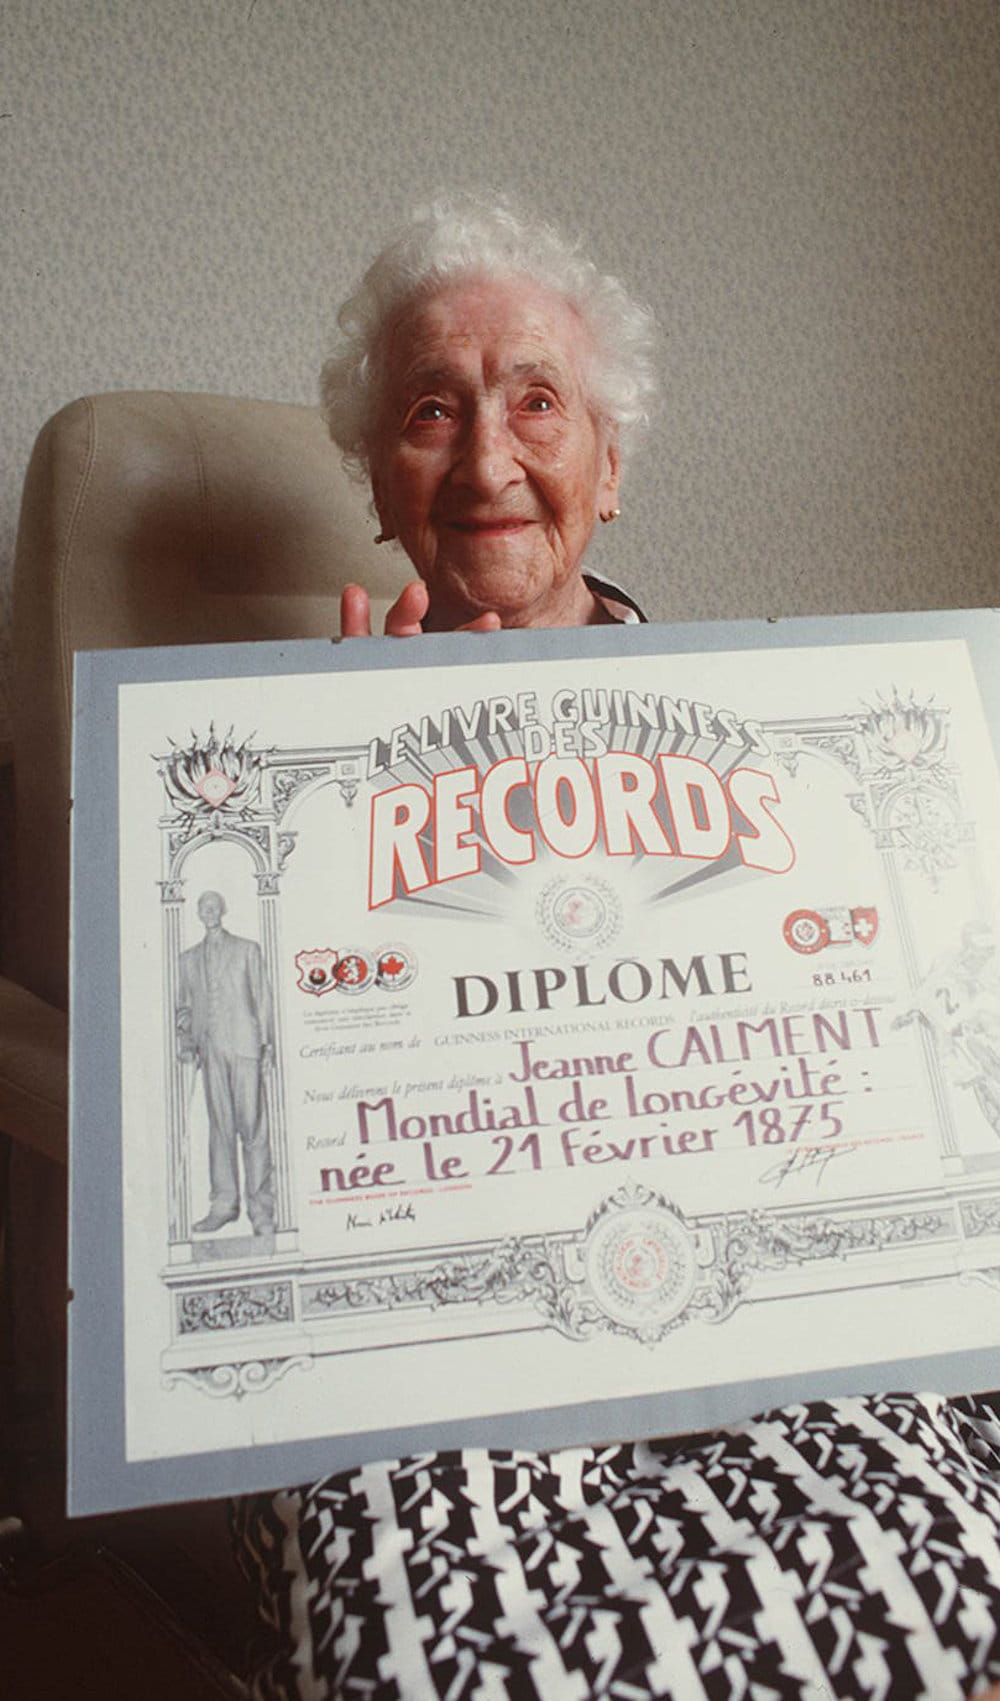 LE LIVRE GUINNESS
DES
RECORDS
DIPLÔME
88.461
Certifiant au nom de GUINNESS INTERNATIONAL RECORDS l'authenticité du Record décrit ci-dessous
Nous délivrons le présent diplôme à Jeanne CALMENT
Record Mondial de longévité :
née le 21 Février 1875
THE GUINNESS BOOK OF RECORDS - LONDON